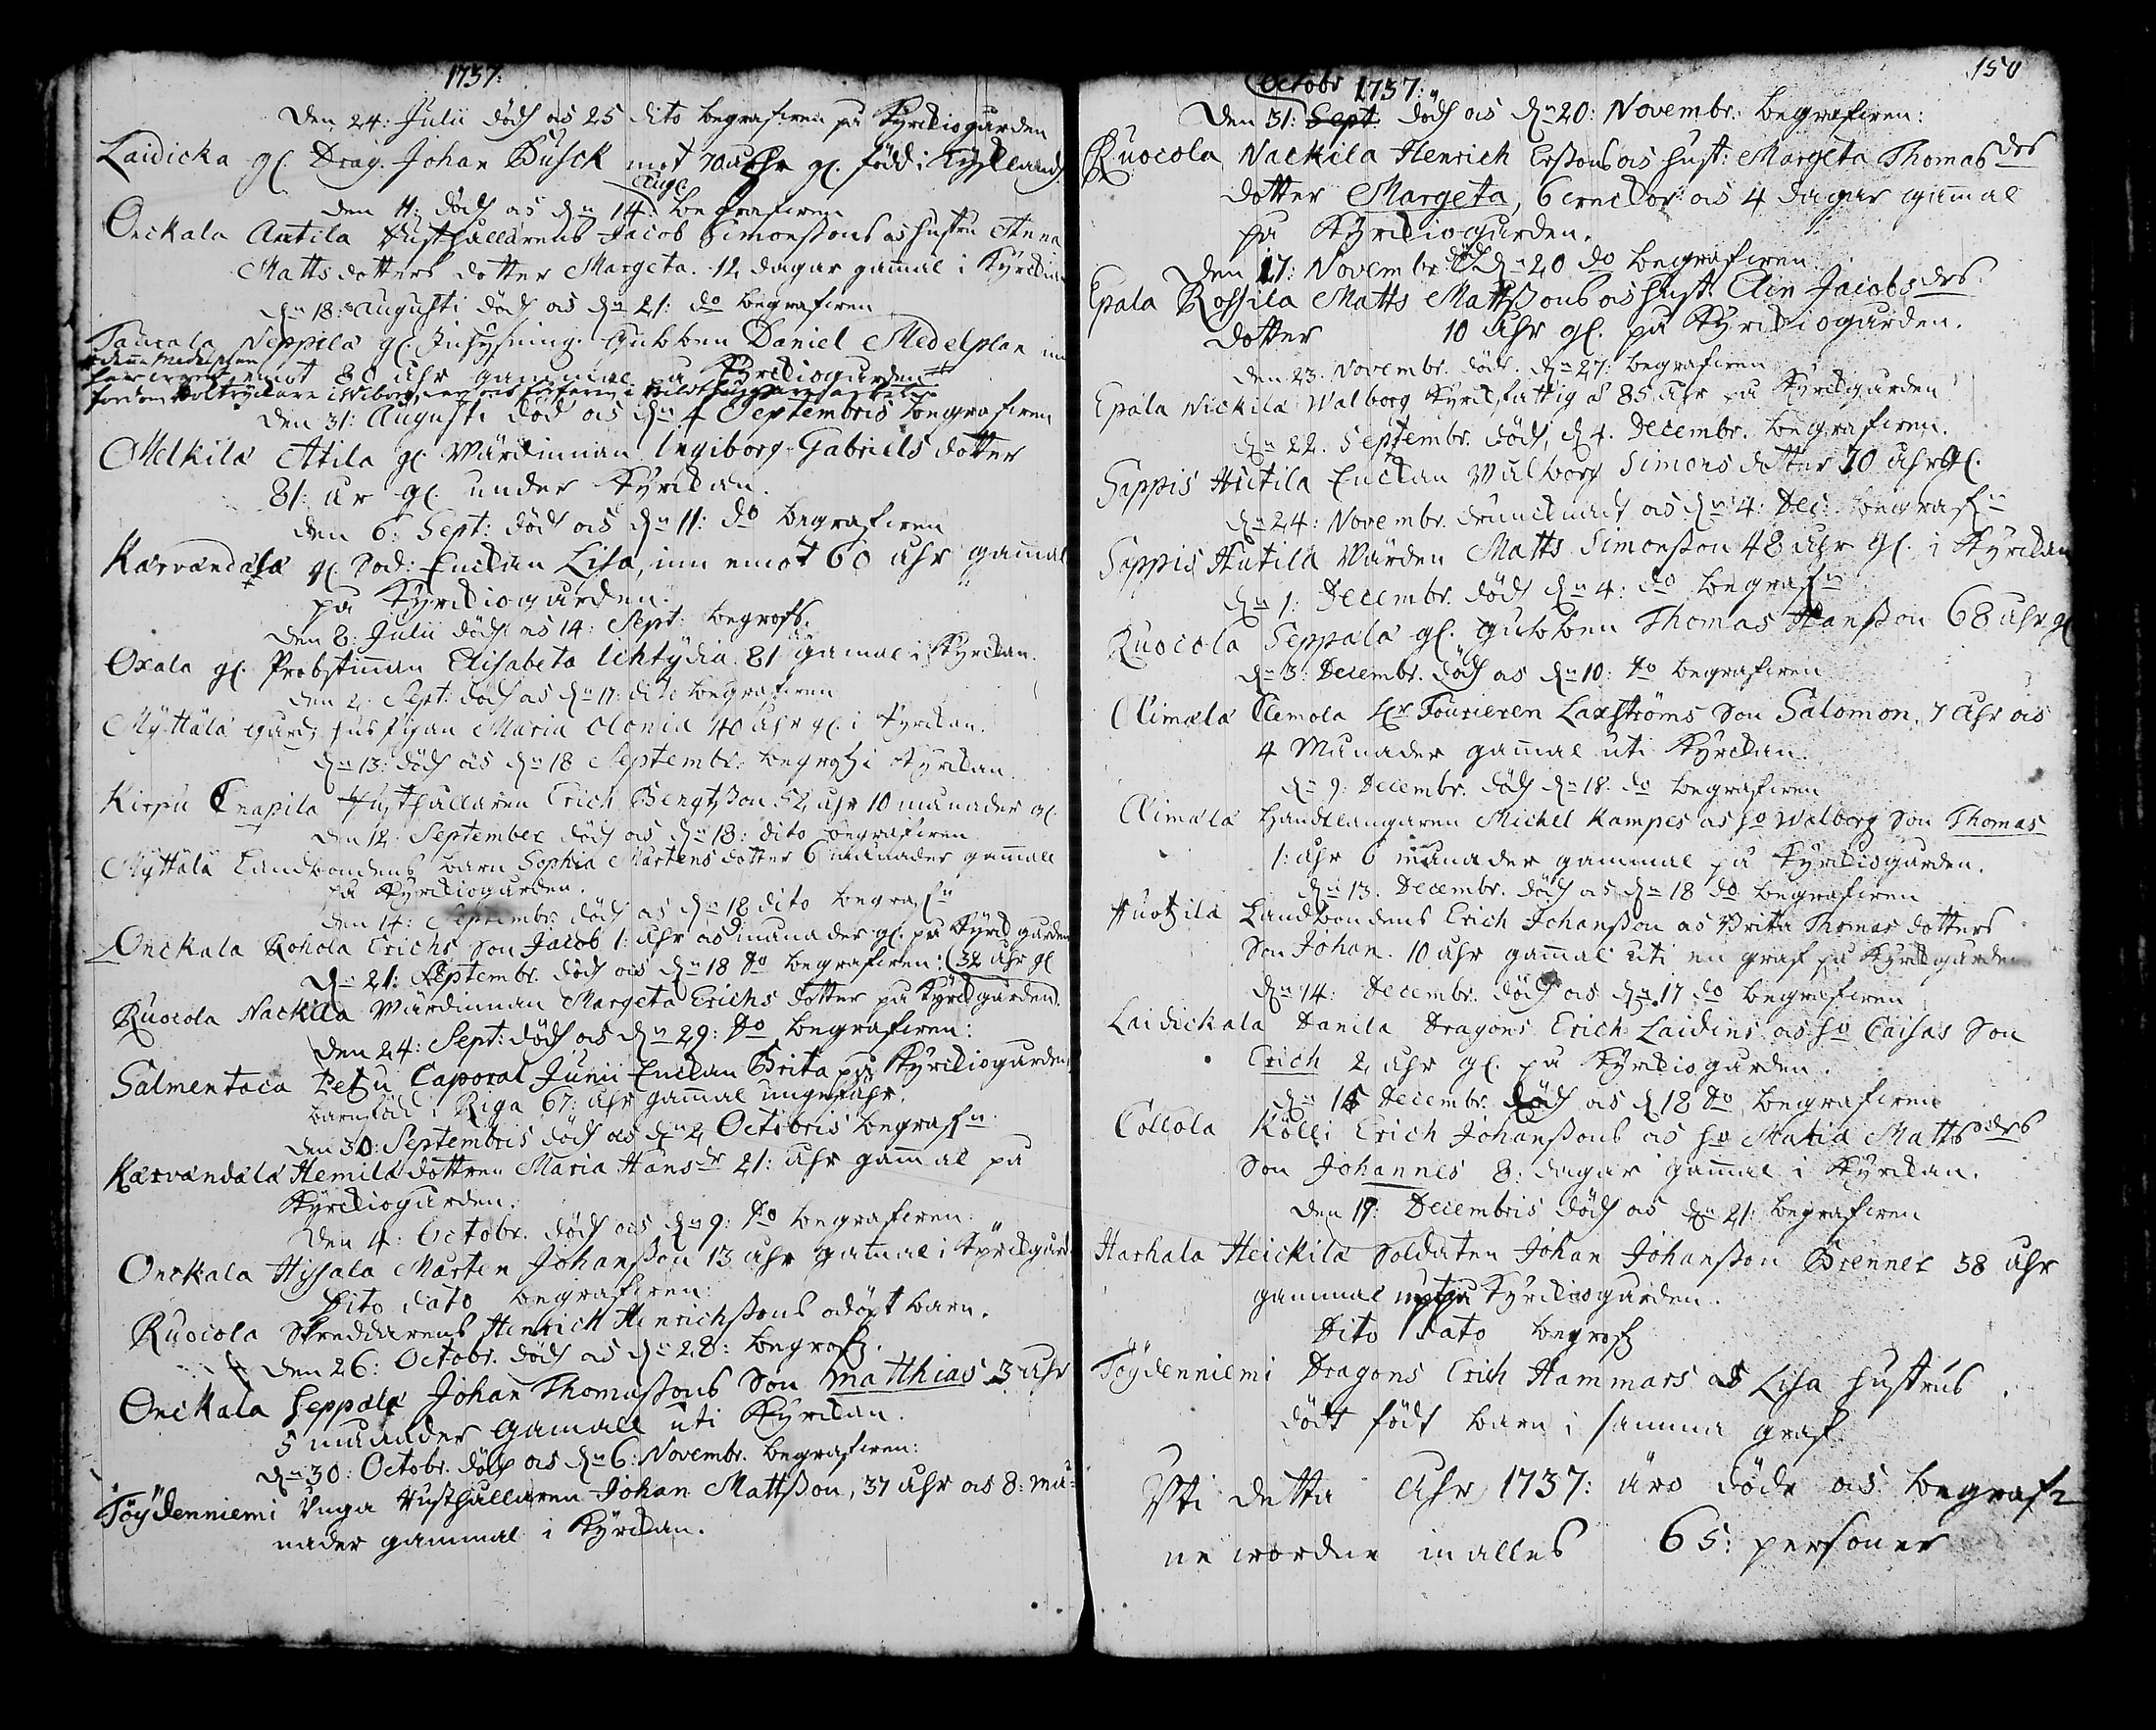 1737:
Den 24: Julii död och 25 dito begrafven på Kyrckiogården
Laidicka gl. Drag. Johan Busck mot 70 åhr gl. född i Tyskland
Aug:
den 11: död och den 14: begrafven
Onckala Antila Rusthållarens Jacob Simonssons och hustru Anna
Mattsdotters dotter Margeta. 12 dagar gamal i Kyrckan
den 18: Augusti död och den 21: do begrafven
Taucala Seppila gl. Inhysning. Gubben Daniel Medelplan in
emot 80 åhr gammal på Kyrckiogården
denna Medelplan
Den 31: Augusti död och den 4 Septembris begrafven
Melkila Atila gl. Wärdinnan Ingiborg Gabriels dotter
81: år gl. under Kyrckan.
den 6: Sept: död och den 11: do begrafven
Karvandala gl. Sod: Enckan Lisa, inn emot 60 åhr gamal
på Kyrckiogården.
den 8: Julii död och 14: Sept: begrofs.
Oxala gl. Probstinnan Elisabeta Ichtydia 81 gamal i Kyrckan.
den 2: Sept: död och den 11: dito begrafven
Myttälä gårdz hustrun Maria Clonia 40 åhr gl. i Kyrckan.
den 13: död och den 18 Septembr: begrofz i Kyrckan.
Kirpu Cnapila Rusthållaren Erich Bengtsson 52 åhr 10 månader gl.
den 12: September död och den 18: dito begrafven
Myttälä Landbondens barn Sophia Mårtens dotter 6 månader gammall
på Kyrckiogården.
den 14: Septembr. död och den 18 dito begrafn
Onckala Rohola Erichs Son Jacob 1: åhr och månader gl. på Kyrckgården
den 21: Septembr. död och den 18 do begrafven: (32 åhr gl
Ruocola Nackila Wärdinnan Margeta Erichs dotter på Kyrckgården.
den 24: Sept: död och den 29: do begrafven:
Salmentaca Petu Caporal Junii Enckan Brita på Kyrckiogården,
barnfödd i Riga 67: åhr gammal ungefähr.
den 30: Septembris död och den 2 Octobris begrafn
Karvandala Hemila dottren Maria Hans dr 21: åhr gammal på
Kyrckiogården.
den 4: Octobr. död och den 9: do begrafven:
Onckala Hysala Mårten Johansson 13 åhr gammal i Kyrckgård
Dito dato begrafven:
Ruocola Skreddarens Henrich Henrichssons odöpt barn.
den 26: Octobr. död och den 28: begrofz.
Onckala Seppala Johan Thomassons Son Matthias 3 åhr
5 månader gamall uti Kyrckan.
den 30: Octobr. död och den 6: Novembr. begrafven:
Töydenniemi Unga Rusthållaren Johan Mattsson, 37 åhr och 8: må=
nader gammal i Kyrckan.
150
Octobr 1737:
Den 31: Sept: död och den 20: Novembr. begrafven:
Ruocola Nackila Henrich Erssons och hust: Margeta Thomas drs
dotter Margeta, 6 weckor och 4 dagar gammal
på Kyrckiogården.
Den 17: Novembr. död den 20 do begrafven
Epala Rossila Matts Mattssons och hust: Elin Jacobs drs
dotter 10 åhr gl. på Kyrckiogården.
den 23. Novembr. död. den 27: begrafven
Epala Nickila Walborg Kyrckfattig à 85 åhr på Kyrckgården
den 22. Septembr. död, d 4. Decembr. begrafven.
Sappis Hutila Enckan Walborg Simons dotter 70 åhr gl.
den 24: Novembr. drunknadt och den 4: Dec: begrafn
Sappis Hutila Wärden Matts Simonsson 48 åhr gl. i Kyrckan
den 1: Decembr. död den 4: do begrafn
Ruocola Seppala gl. gubben Thomas Hansson 68 åhr gl
den 3: Decembr. död och den 10: do begrafven
Aimala Clemola Hr Fourieren Laxströms Son Salomon. 7 åhr och
4 Månader gammal uti Kyrckan.
den 9: Decembr. död den 18: do begrafven
Aimala Handtlangaren Michel Kampes och ho Walborg Son Thomas
1: åhr 6 månader gammal på Kyrckiogården.
den 13. Decembr. död och den 18 do begrafven
Huotzila Landbondens Erich Johansson och Brita Thomas dotters
Son Johan. 10 åhr gammal uti en graf på Kyrckgården
den 14: Decembr. död och den 17 do begrafven
Laidickala Danila Dragons Erich Laidins och ho Caisas Son
Erich 2 åhr gl. på Kyrckiogården.
den 15 Decembr. död och d 18 do begrafven
Collola Kölli Erich Johanssons och ho Maria Matts drs
Son Johannes 8: dagar gammal i Kyrckan.
den 19: Decembris död och den 21: begrafven
Harhala Heickila Soldaten Johan Johansson Brenner 38 åhr
gammal på Kyrckiogården.
Dito Dato begrofz
Töydenniemi Dragons Erich Hammars och Lisa hustrus
dödt födt barn i samma graf.
Uti detta åhr 1737: äro döde och begraf=
ne wordne in alles 65: personer